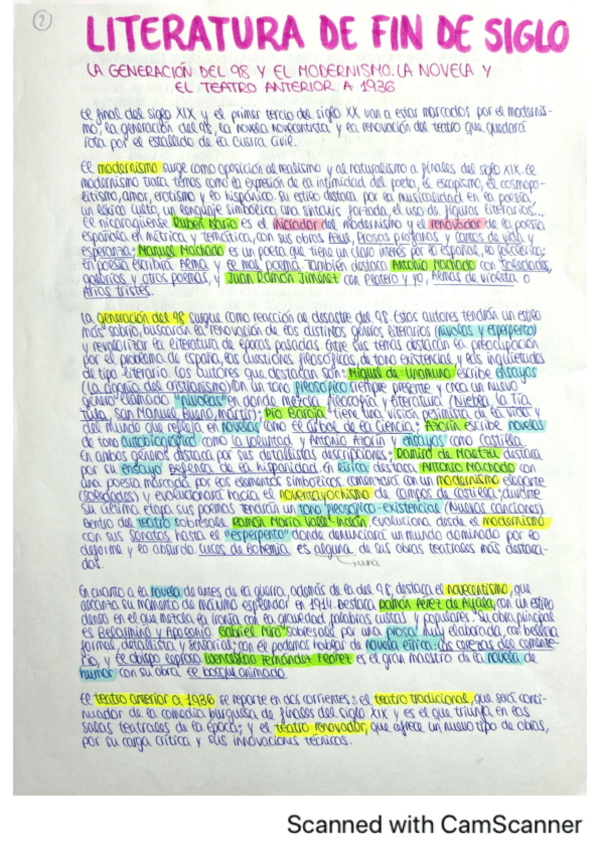 2
LITERATURA DE FIN DE SIGLO
LA GENERACIÓN DEL 98 Y EL MODERNISMO. LA NOVELA Y
EL TEATRO ANTERIOR A 1936
El final del siglo XIX y el primer tercio del siglo XX van a estar marcados por el modernis-
mo, la generación del 98, la novela novecentista y la renovación del teatro que quedará
rota por el estallado de la Guerra Civil.
El modernismo surge como oposición al realismo y al naturalismo a finales del siglo XIX. El
modernismo trata temas como la expresión de la intimidad del poeta, el escapismo, el cosmopo-
litismo, amor, erotismo y lo hispánico. Su estilo destaca por la musicalidad en la poesía,
un léxico culto, un lenguaje simbólico, una sintaxis forzada, el uso de figuras literarias...
El nicaragüense Rubén Darío es el iniciador del modernismo y el renovador de la poesía
española en métrica y temática, con sus obras Azul, Prosas profanas y Cantos de vida y
esperanza; Manuel Machado es un poeta que tiene un claro interés por la española, lo folclórico;
en poesía escribió Alma y El mal poema. También destaca Antonio Machado con Soledades,
galerías y otros poemas, y Juan Ramón Jiménez con Platero y yo, Almas de violeta o
Arias tristes.
La generación del 98 surgue como reacción al desastre del 98. Estos autores tendrán un estilo
más sobrio, buscarán la renovación de los distintos géneros literarios (nivolas y esperpento)
y revalorizar la literatura de épocas pasadas. Entre sus temas destacan la preocupación
por el problema de España, las cuestiones filosóficas, de tono existencial, y las inquietudes
de tipo literario. Los autores que destacan son: Miguel de Unamuno escribe ensayos
(La agonía del cristianismo) con un tono filosófico siempre presente y crea un nuevo
género llamado "nivolas" en donde mezcla filosofía y literatura (Niebla, La Tía
Tula, San Manuel Bueno, mártir); Pío Baroja tiene una visión pesimista de la vida y
del mundo que refleja en novelas como El árbol de la ciencia; Azorín escribe novelas
de tono autobiográfico como La voluntad y Antonio Azorín y ensayos como Castilla.
En ambos géneros destaca por sus detalladas descripciones; Ramiro de Maeztu destaca
por su ensayo Defensa de la hispanidad. En lírica destaca Antonio Machado con
una poesía marcada por los elementos simbólicos, comenzará con un modernismo elegante
(Soledades) y evolucionará hacia el noventayochismo de Campos de Castilla; durante
su última etapa sus poemas tendrán un tono filosófico-existencial (Nuevas canciones)
Dentro del teatro sobresale Ramón María Valle-Inclán, evoluciona desde el modernismo
con sus Sonatas hasta el "esperpento" donde denunciará un mundo dominado por lo
deforme y lo absurdo. Luces de Bohemia es alguna de sus obras teatrales más destaca-
das.
una
En cuanto a la novela de antes de la guerra, además de la del 98, destaca el novecentismo, que
alcanza su momento de máximo esplendor en 1914. Destaca Ramón Pérez de Ayala, con un estilo
denso en el que mezcla la ironía con la gravedad, palabras cultas y populares. Su obra principal
es Belarmino y Apolonio. Gabriel Miró sobresale por una prosa muy elaborada, con belleza
formal, detallista y sensorial; con él podemos hablar de novela lírica: Las cerezas del cemente-
rio, y El obispo leproso. Wenceslao Fernández Flórez es el gran maestro de la novela de
humor con su obra El bosque animado.
El teatro anterior a 1936 se reparte en dos corrientes: el teatro tradicional, que será conti-
nuador de la comedia burguesa de finales del siglo XIX y es el que triunfa en las
salas teatrales de la época; y el teatro renovador, que ofrece un nuevo tipo de obras,
por su carga crítica y sus innovaciones técnicas.
Scanned with CamScanner